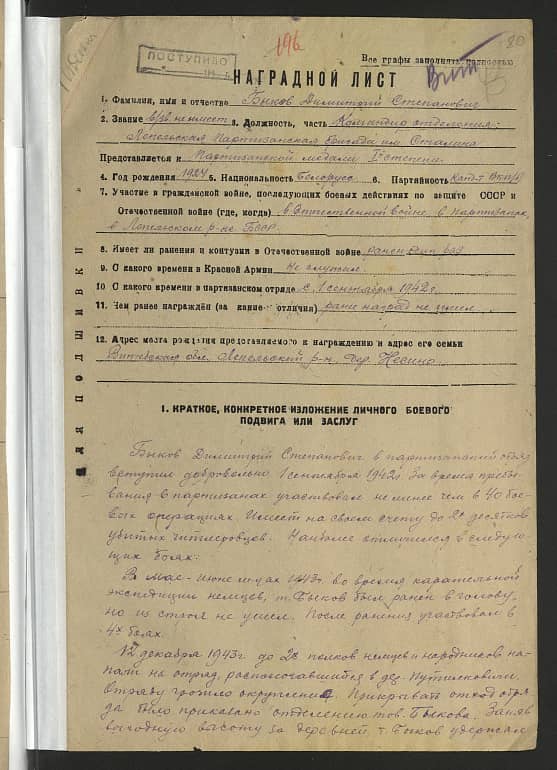 196
80
ПОСТУПИЛО
Все графы заполнять полностью
НАГРАДНОЙ ЛИСТ
1. Фамилия, имя и отчество Быков Димитрий Степанович
2. Звание в/зв. не имеет 3. Должность, часть Командир отделения,
Лепельская Партизанская бригада им. Сталина
Представляется к Партизанской медали II степени
4. Год рождения 1924 5. Национальность Белорус 6. Партийность Канд-т ВКП(б)
7. Участие в гражданской войне, последующих боевых действиях по защите СССР и
Отечественной войне (где, когда) в Отечественной войне, в партизанах,
в Лепельском р-не БССР.
8. Имеет ли ранения и контузии в Отечественной войне ранен один раз
9. С какого времени в Красной Армии Не служил.
10 С какого времени в партизанском отряде с 1 сентября 1942 г.
11. Чем ранее награждён (за какие отличия) ранее наград не имел
12. Адрес места рождения представляемого к награждению и адрес его семьи
Витебская обл. Лепельский р-н, дер. Несино
ДЛЯ ПОДШИВКИ
1. КРАТКОЕ, КОНКРЕТНОЕ ИЗЛОЖЕНИЕ ЛИЧНОГО БОЕВОГО
ПОДВИГА ИЛИ ЗАСЛУГ
Быков Димитрий Степанович в партизанский отряд
вступил добровольно 1 сентября 1942 г. За время пребы-
вания в партизанах участвовал не менее чем в 40 бое-
вых операциях. Имеет на своем счету до 2х десятков
убитых гитлеровцев. Наиболее отличился в следую-
щих боях:
В мае-июне м-цах 1943 г. во время карательной
экспедиции немцев, т. Быков был ранен в голову,
но из строя не ушел. После ранения участвовал в
4х боях.
12 декабря 1943 г до 2х полков немцев и народников на-
пали на отряд, расположившийся в дер. Путилковичи.
Отряду грозило окружение. Прикрывать отход отря-
да было приказано отделению тов. Быкова. Заняв
выгодную высоту за деревней, т. Быков удержал